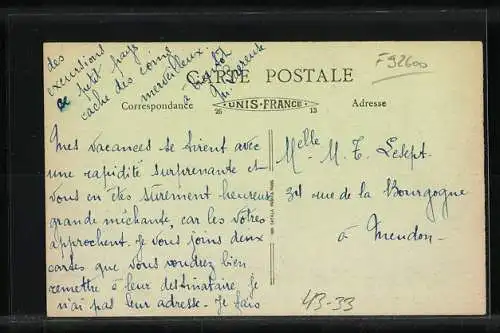 des
excursions
ce petit pays
cache des coins
merveilleux.
à bientôt
F92600
CARTE POSTALE
Correspondance
UNIS-FRANCE
26
13
Adresse
Mes vacances se tirent avec
une rapidité surprenante et
vous en êtes sûrement heureuse
grande méchante, car les vôtres
approchent. Je vous joins deux
cartes que vous voudrez bien
remettre à leur destinataire. Je
n'ai pas leur adresse. Je fais
Melle M. T. Lesept.
34 rue de la Bourgogne
à Meudon.
43-33